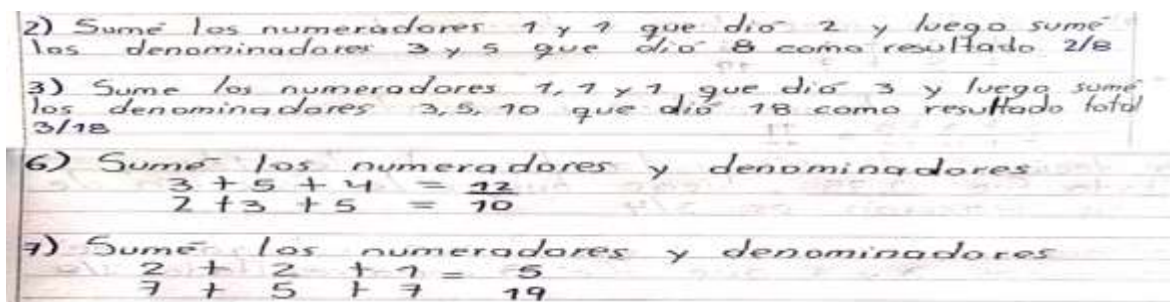 2) Sumé los numeradores 1 y 1 que dió 2 y luego sumé
los denominadores 3 y 5 que dió 8 como resultado 2/8
3) Sume los numeradores 1, 1 y 1 que dió 3 y luego sumé
los denominadores 3, 5, 10 que dió 18 como resultado total
3/18
6) Sumé los numeradores y denominadores
3 + 5 + 4 = 12
2 + 3 + 5 = 10
7) Sumé los numeradores y denominadores
2 + 2 + 1 = 5
7 + 5 + 7 19